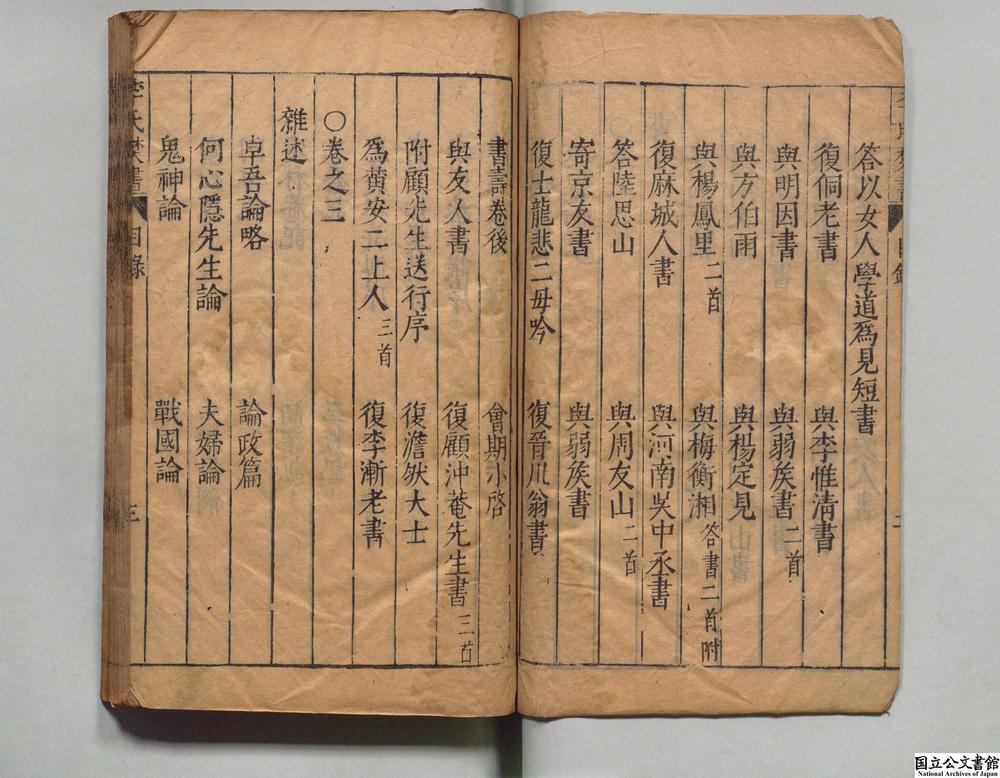 答以女人學道為見短書
復侗老書　與李惟清書
與明因書　與弱侯書二首
與方伯雨　與楊定見
與楊鳳里二首　與梅衡湘答書二首附
復麻城人書　與河南吳中丞書
答陸思山　與周友山二首
寄京友書　與弱侯書
復士龍悲二母吟　復晉川翁書
書壽卷後　會期小啓
與友人書　復顧沖菴先生書三首
附顧先生送行序　復澹然大士
為黃安二上人三首　復李漸老書
○卷之三
雜述
卓吾論略　論政篇
何心隱先生論　夫婦論
鬼神論　戰國論
李氏焚書　目錄　三
国立公文書館
National Archives of Japan